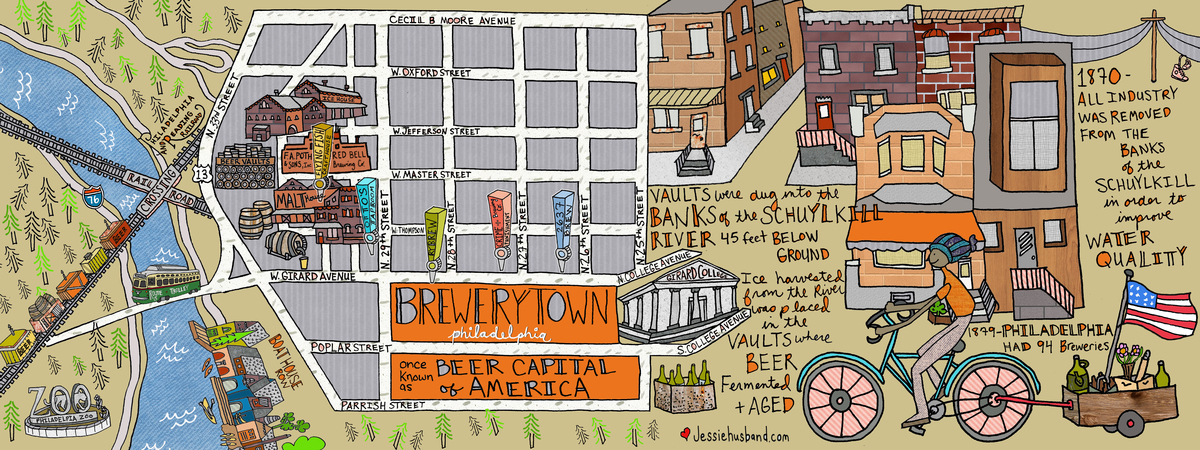 CECILL B MOORE AVENUE
W. OXFORD STREET
W. JEFFERSON STREET
W. MASTER STREET
W. THOMPSON
W. GIRARD AVENUE
POPLAR STREET
PARRISH STREET
N. 33rd STREET
N. 29th STREET
N. 28th STREET
N. 29th STREET
N. 26th STREET
N. 25th STREET
N. COLLEGE AVENUE
S. COLLEGE AVENUE
GIRARD COLLEGE
PHILADELPHIA
AND READING
RAILROAD
RAILROAD
CROSSING
13
76
ICE HOUSE
BEER VAULTS
F.A. POTH
& SONS, Inc.
RED BELL
Brewing Co
FLYING FISH
MALT house
BEER
ZOO
PHILADELPIA ZOO
BOATHOUSE
ROW
BREWERYTOWN
philadelphia
once
Known
as
BEER CAPITAL
of AMERICA
VAULTS were dug into the
BANKS of the SCHUYLKILL
RIVER 45 feet BELOW
GROUND
Ice harvested
from the River
was placed
in the
VAULTS where
BEER
Fermented
+ AGED
Jessiehusband.com
1870-
ALL INDUSTRY
WAS REMOVED
FROM THE
BANKS
of the
SCHUYLKILL
in order to
improve
WATER
QUALITY
1899-PHILADELPHIA
HAD 94 Breweries